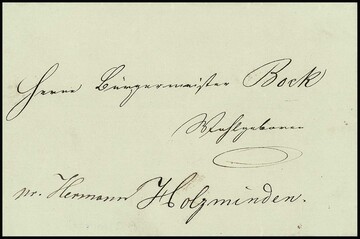 Herrn Bürgermeister Bock
Wohlgeboren
pr. Hermann Holzminden.